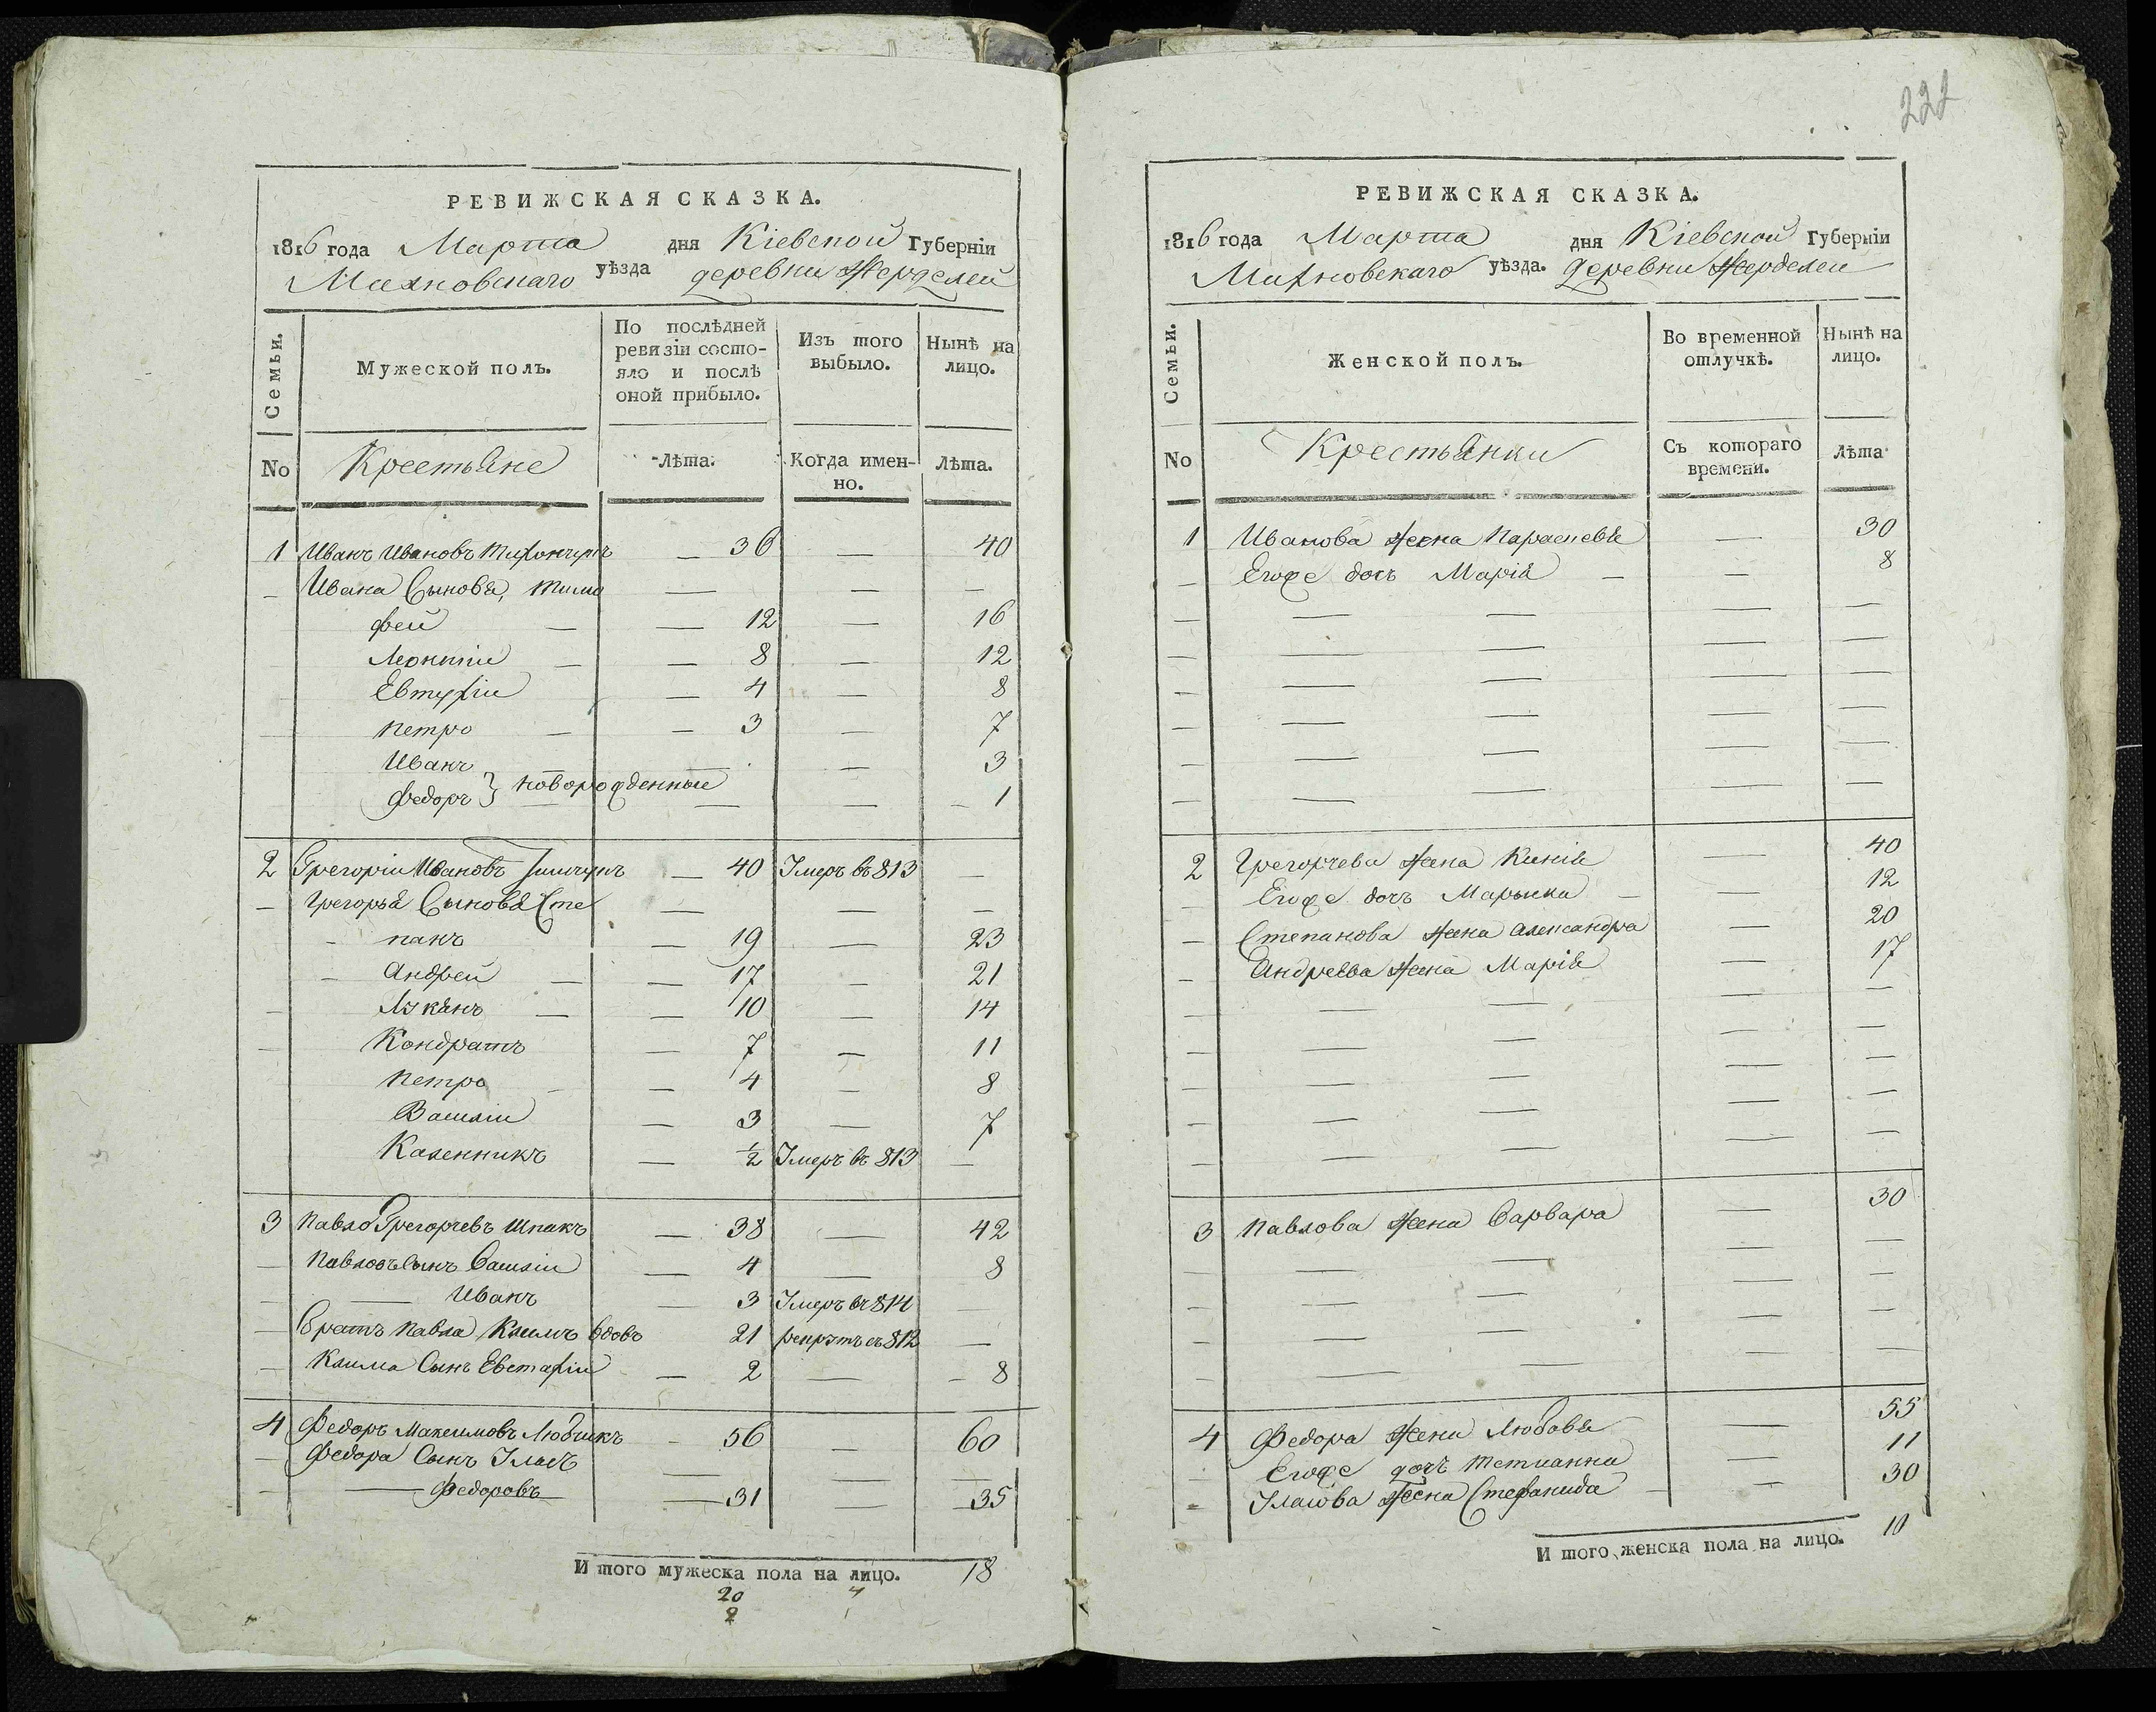 222
РЕВИЖСКАЯ СКАЗКА.
1816 года Марта дня Кіевской Губерніи
Махновскаго уѣзда деревни Жерделей
Семьи.
Мужеской полъ.
По послѣдней ревизіи состо-
яло и послѣ оной прибыло.
Изъ того выбыло.
Нынѣ на лицо.
No Крестьяне лѣта. Когда имен-
но. лѣта.
1 Иванъ Ивановъ — 36 — 40
— Ивана Сыновья, Тимо — — —
фей — — 12 — 16
Леонтій — — 8 — 12
Евтухій — 4 — 8
Петро — — 3 — 7
Иванъ — — — 3
Федоръ } новорожденные — — — — 1
2 Грегорій Ивановъ — 40 Умеръ въ 813 —
— Грегорья Сыновья Сте — — —
— панъ — 19 — 23
— Андрей — — 17 — 21
— Лукянъ — — 10 — 14
— Кондратъ — 7 — 11
Петро — — 4 — 8
Василій — 3 — 7
Каленникъ — ½ Умеръ въ 813 —
3 Павло Грегорчевъ Шпакъ — 38 — 42
— Павловъ Сынъ Василій — 4 — 8
— — Иванъ — 3 Умеръ въ 814 —
— Братъ Павла Климъ вдовъ 21 рекрутъ въ 812 —
— Клима Сынъ Евстафій — 2 — — 8
4 Федоръ Максимовъ Любчикъ — 56 — 60
— Федора Сынъ Уласъ — — —
— — Федоровъ — 31 — — 35
И того мужеска пола на лицо. 18
20 4
2
РЕВИЖСКАЯ СКАЗКА.
1816 года Марта дня Кіевской Губерніи
Махновскаго уѣзда. деревни Жерделей
Семьи.
Женской полъ.
Во временной отлучкѣ.
Нынѣ на лицо.
No Крестьянки Съ котораго времени. лѣта
1 Иванова жена Параскевья — 30
— Егоже дочь Марія — — 8
2 Грегорчева жена Ксенія — 40
— Егоже дочь Марьяна — — 12
— Степанова жена Александра — 20
— Андреева жена Марія — 17
3 Павлова жена Варвара — 30
4 Федора жена Любовья — 55
— Егоже дочь Тетианна — 11
— Уласова жена Стефанида — — 30
И того женска пола на лицо. 10